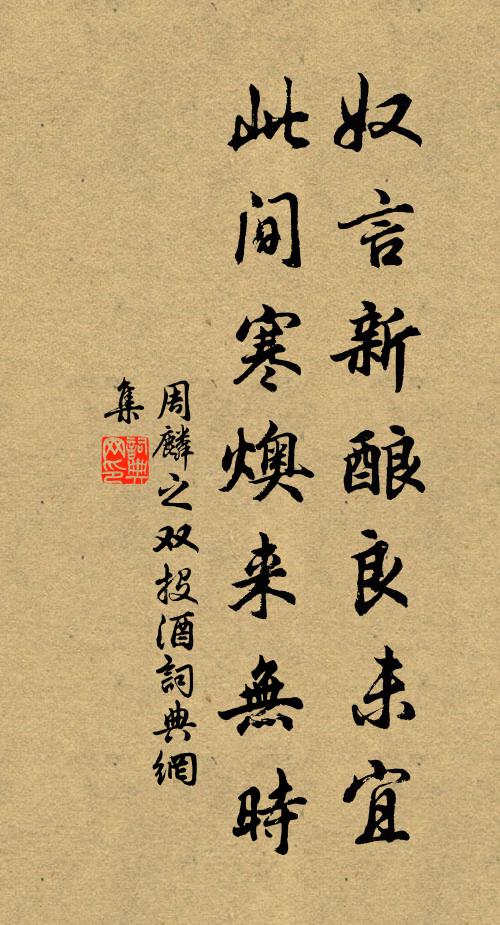 奴言新酿良未宜
此间寒燠来無時
周麟之双投酒詞典網
集
詞典網印